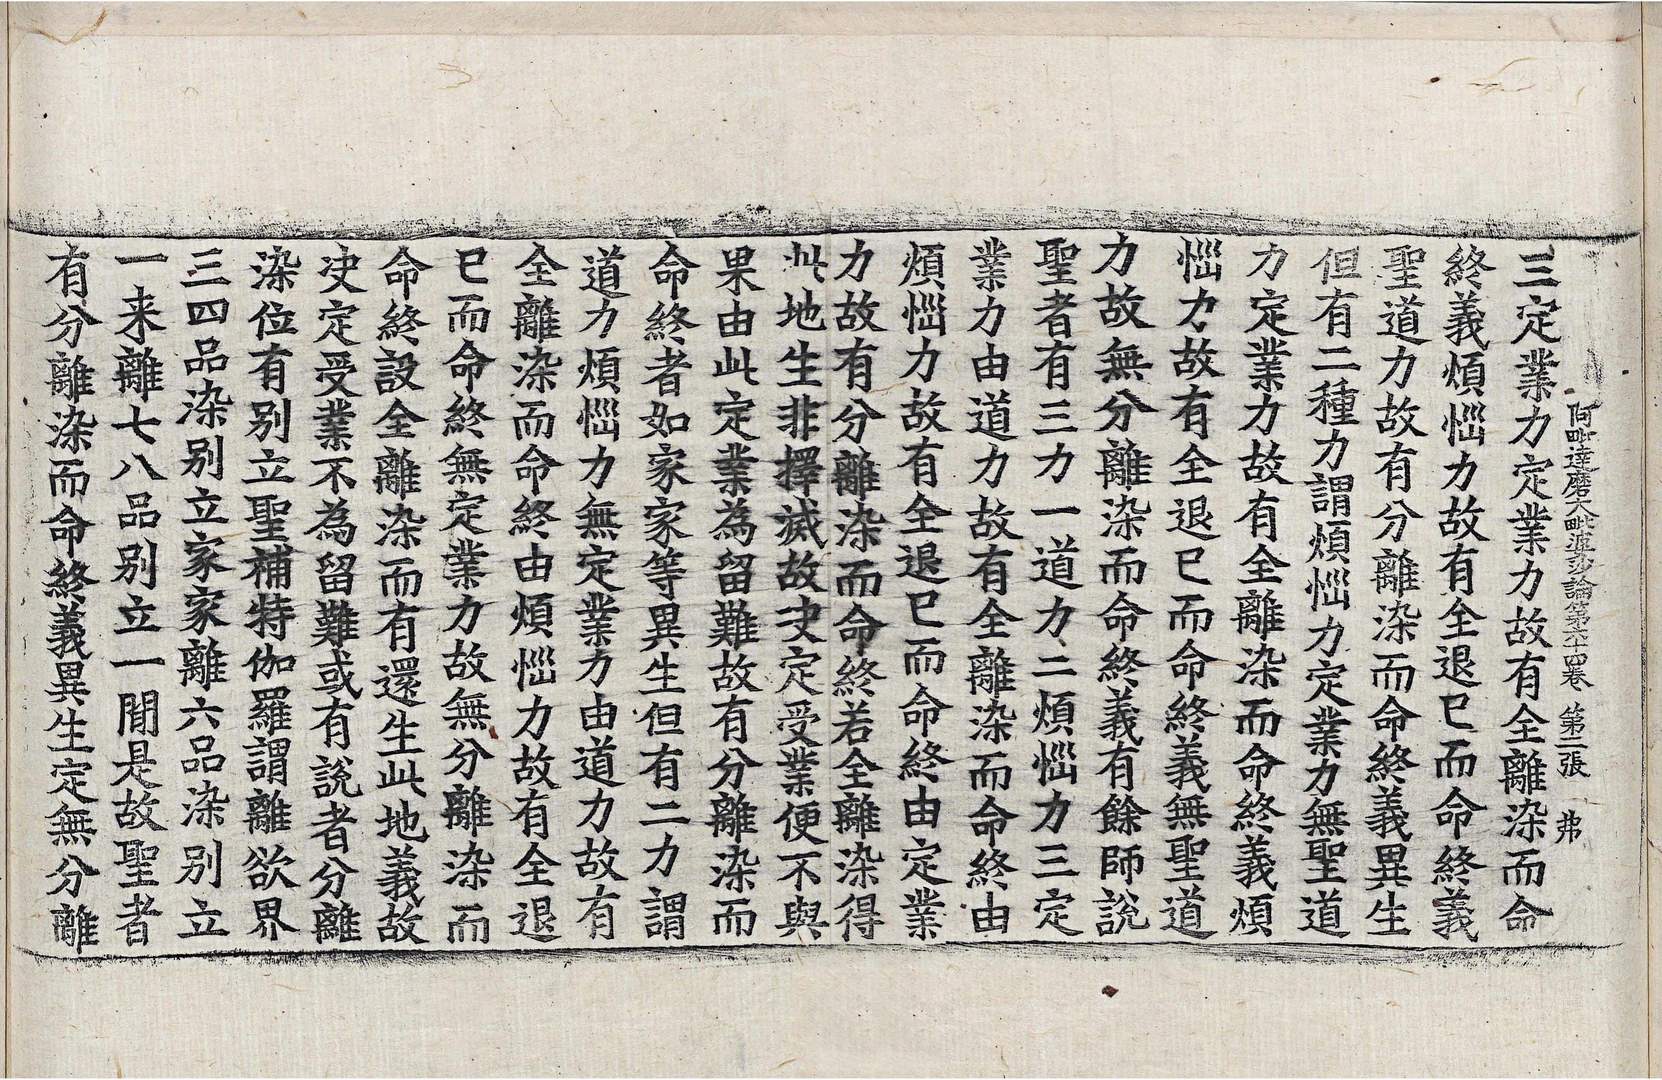 阿毗達磨大毗婆沙論第六十四卷 第二張 弗
三定業力定業力故有全離染而命
終義煩惱力故有全退已而命終義
聖道力故有分離染而命終義異生
但有二種力謂煩惱力定業力無聖道
力定業力故有全離染而命終義煩
惱力故有全退已而命終義無聖道
力故無分離染而命終義有餘師說
聖者有三力一道力二煩惱力三定
業力由道力故有全離染而命終由
煩惱力故有全退已而命終由定業
力故有分離染而命終若全離染得
此地生非擇滅故決定受業便不與
果由此定業為留難故有分離染而
命終者如家家等異生但有二力謂
道力煩惱力無定業力由道力故有
全離染而命終由煩惱力故有全退
已而命終無定業力故無分離染而
命終設全離染而有還生此地義故
决定受業不為留難或有說者分離
染位有别立聖補特伽羅謂離欲界
三四品染别立家家離六品染别立
一来離七八品别立一閒是故聖者
有分離染而命終義異生定無分離